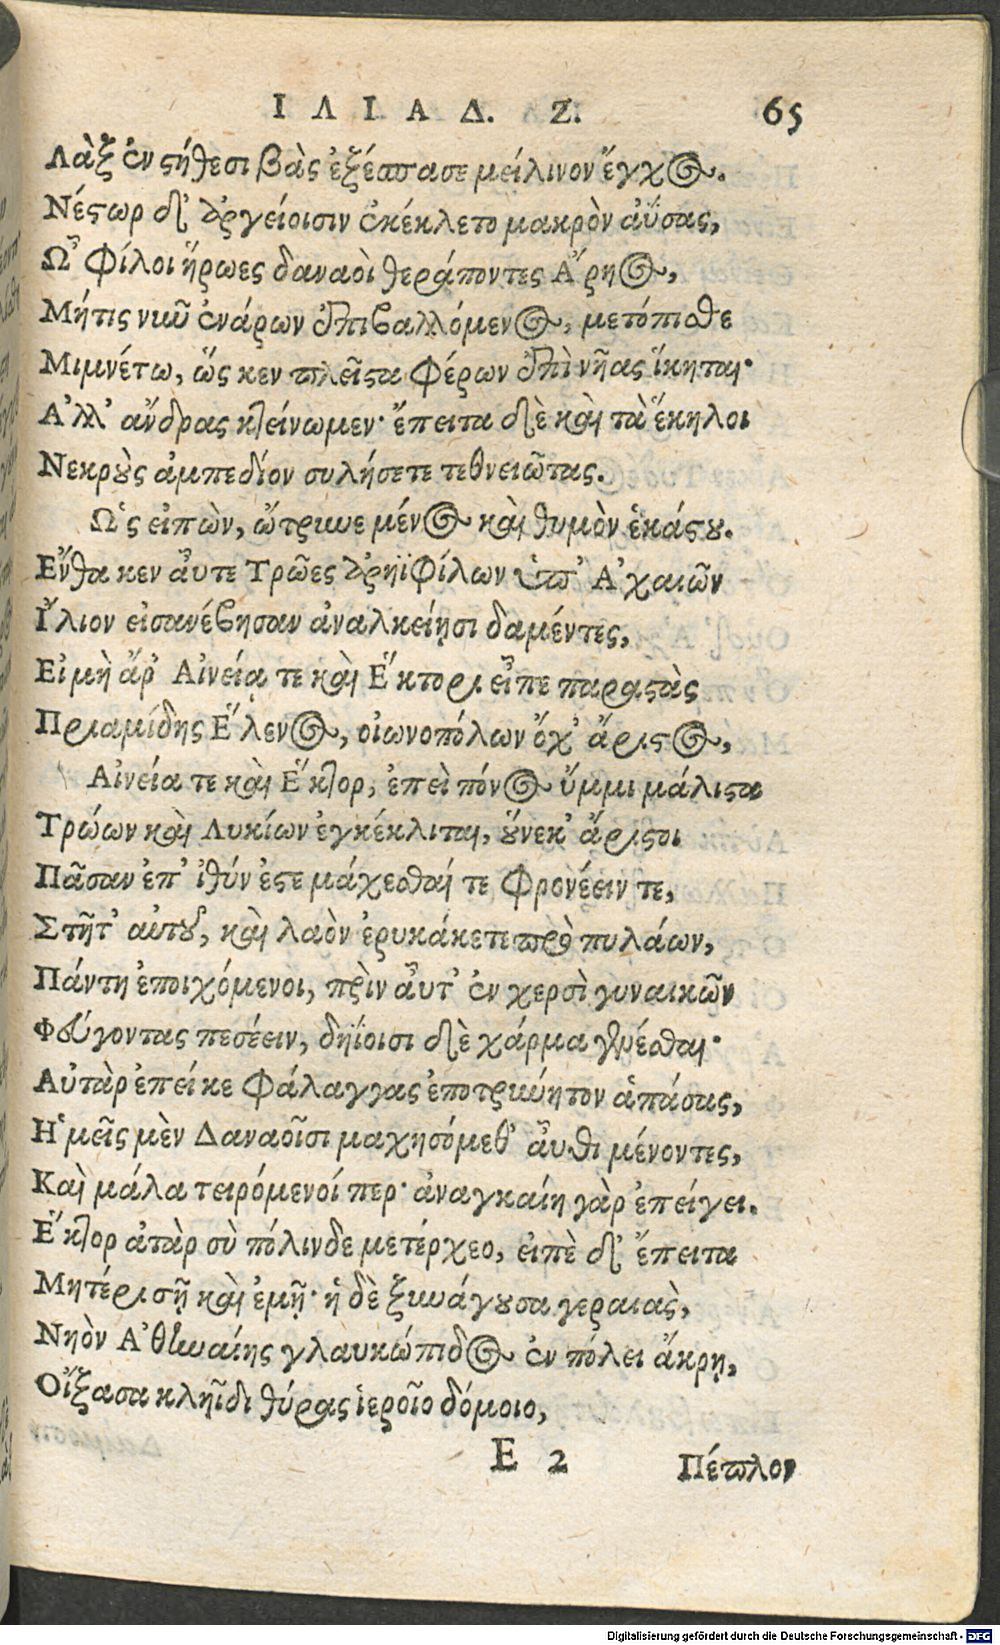 ΙΛΙΑΔ. Ζ. 65
Λὰξ ἐν στήθεσι βὰς ἐξέσπασε μείλινον ἔγχος.
Νέστωρ δ' Ἀργείοισιν ἐκέκλετο μακρὸν ἀΰσας,
Ὦ φίλοι ἥρωες δαναοὶ θεράποντες Ἄρηος,
Μήτις νιῦ ἐνάρων ἐπιβαλλόμενος, μετόπισθε
Μιμνέτω, ὥς κεν πλεῖστα φέρων ἐπὶ νῆας ἵκηται·
Ἀλλ' ἄνδρας κτείνωμεν· ἔπειτα δὲ καὶ τὰ ἕκηλοι
Νεκροὺς ἀμπεδίον συλήσετε τεθνειῶτας.
Ὣς εἰπὼν, ὤτρυνε μένος καὶ θυμὸν ἑκάστου.
Ἔνθα κεν αὖτε Τρῶες ἀρηϊφίλων ὑπ' Ἀχαιῶν
Ἴλιον εἰσανέβησαν ἀναλκείῃσι δαμέντες,
Εἰ μὴ ἄρ' Αἰνείᾳ τε καὶ Ἕκτορι εἶπε παραστὰς
Πριαμίδης Ἕλενος, οἰωνοπόλων ὄχ' ἄριστος,
Αἰνεία τε καὶ Ἕκτορ, ἐπεὶ πόνος ὔμμι μάλιστα
Τρώων καὶ Λυκίων ἐγκέκλιται, οὕνεκ' ἄριστοι
Πᾶσαν ἐπ' ἰθύν ἐστε μάχεσθαί τε φρονέειν τε,
Στῆτ' αὐτοῦ, καὶ λαὸν ἐρυκάκετε πρὸ πυλάων,
Πάντη ἐποιχόμενοι, πρὶν αὖτ' ἐν χερσὶ γυναικῶν
Φεύγοντας πεσέειν, δηΐοισι δὲ χάρμα γενέσθαι·
Αὐτὰρ ἐπεί κε φάλαγγας ἐποτρύνητον ἁπάσας,
Ἡμεῖς μὲν Δαναοῖσι μαχησόμεθ' αὖθι μένοντες,
Καὶ μάλα τειρόμενοί περ· ἀναγκαίη γὰρ ἐπείγει.
Ἕκτορ ἀτὰρ σὺ πόλινδε μετέρχεο, εἰπὲ δ' ἔπειτα
Μητέρι σῇ καὶ ἐμῇ· ἡ δὲ ξυνάγουσα γεραιὰς,
Νηὸν Ἀθηναίης γλαυκώπιδος ἐν πόλει ἄκρῃ,
Οἴξασα κληῖδι θύρας ἱεροῖο δόμοιο,
E 2 Πέπλον
Digitalisierung gefördert durch die Deutsche Forschungsgemeinschaft - DFG